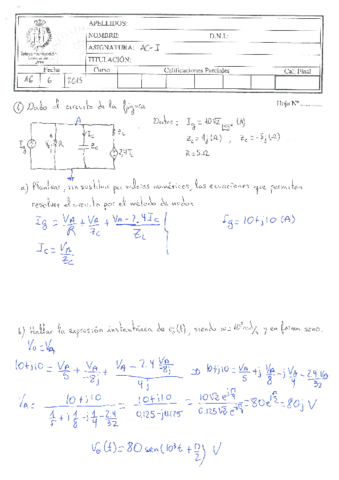 APELLIDOS:
NOMBRE: D.N.I.:
ASIGNATURA: AC-I
TITULACIÓN:
Fecha Curso Calificaciones Parciales Cal. Final
16 6 2015
Hoja Nº
① Dado el circuito de la figura
Datos: I_g = 10√2 (A)
R = 5 Ω
a) Plantear, sin sustituir por valores numéricos, las ecuaciones que permiten
resolver el circuito por el método de nudos
I_g = V_A/R + V_A/Z_c + (V_A - 2.4 I_c)/Z_L
I_g = 10 + j10 (A)
I_c = V_A/Z_c
b) Hallar la expresión instantánea de v_0(t), siendo w = 10³ rad/s y en forma seno.
V_0 = V_A
10+j10 = V_A/5 + V_A/-8j + (V_A - 2.4 V_A/-8j)/4j ⇒ 10+j10 = V_A/5 + j V_A/8 - j V_A/4 - 2.4 V_A/32
V_A = (10+j10)/(1/5 + j 1/8 - j 1/4 - 2.4/32) = (10+j10)/(0.125 - j0.125) = 80 e^{jπ/2} = 80j V
v_0(t) = 80 sen(10³t + π/2) V